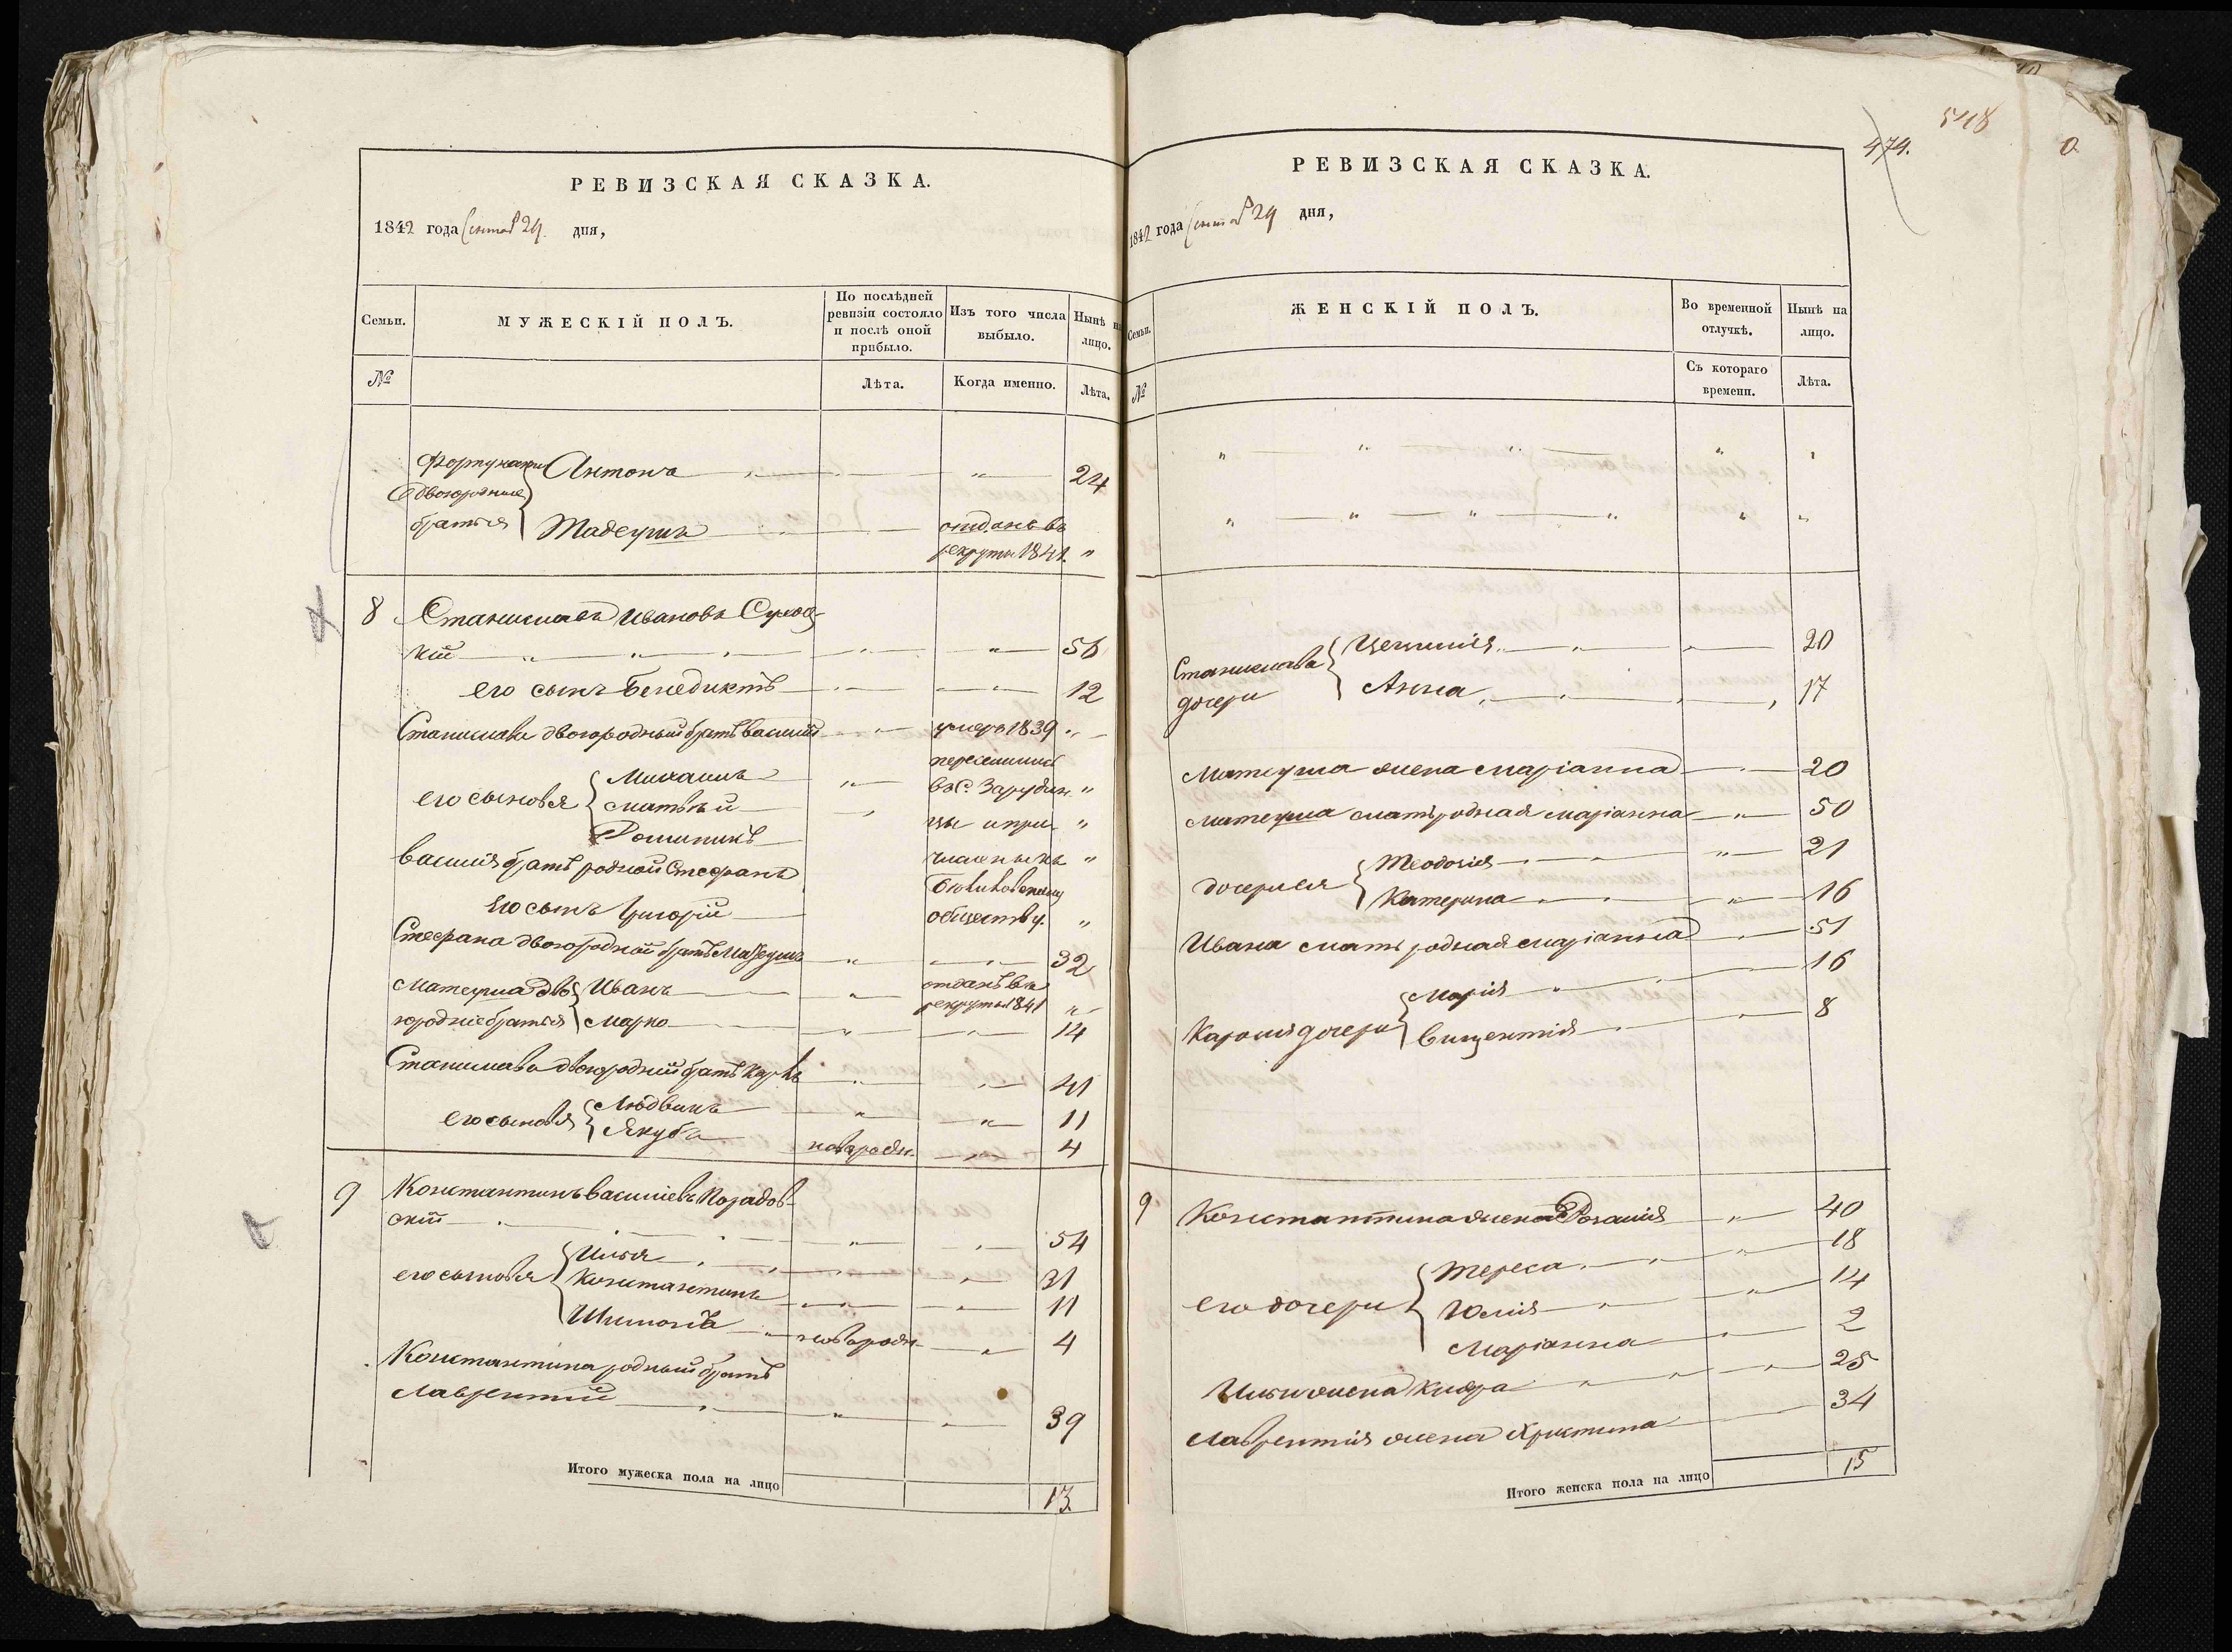 РЕВИЗСКАЯ СКАЗКА.
1842 года Сентяб 29 дня,
Семьи.
МУЖЕСКІЙ ПОЛЪ.
По послѣдней ревизіи состояло и послѣ оной прибыло.
Изъ того числа выбыло.
Нынѣ на лицо.
№
Лѣта.
Когда именно.
Лѣта.
двоюродные братья
Антонъ 24
Тадеушъ отданъ въ
рекруты 1841. "
8 Станиславъ Ивановъ
кій " " " " 56
его сынъ Бенедиктъ 12
Станислава двоюродный братъ Василій умеръ 1839 "
его сыновья
Михаилъ переселились "
Матвѣй в с. "
Доминикъ цы и при- "
Василія братъ родной Стефанъ численны къ "
его сынъ Григорій обществу. "
Стефана двоюродной братъ Матеушъ 32
Матеуша двою-
родніе братья
Иванъ отданъ въ
рекруты 1841 "
Марко 14
Станислава двоюродній братъ Карль 41
его сыновья
Людвикъ 11
Якубъ новорожд. 4
9 Константинъ Василіевъ
скій 54
его сыновья
Илья 31
Константинъ 11
Шимонъ новорожд. 4
Константина родный братъ
Лаврентій 39
Итого мужеска пола на лицо 13.
РЕВИЗСКАЯ СКАЗКА.
474.
518
0
1842 года Сентяб 29 дня,
Семьи.
ЖЕНСКІЙ ПОЛЪ.
Во временной отлучкѣ.
Нынѣ на лицо.
№
Съ котораго времени.
Лѣта.
" " " " "
" " " " " "
Станислава
дочери
Цецилія 20
Анна 17
Матеуша жена Маріанна 20
Матеуша мать родная Маріанна 50
дочери ея
Теодосія 21
Катерина 16
Ивана мать родная Маріанна 51
дочери
Марія 16
Винцентія 8
9 Константина жена Розалія 40
его дочери
Тереса 18
Юлія 14
Маріанна 2
Ильи жена 25
Лаврентія жена Христина 34
Итого женска пола на лицо 15